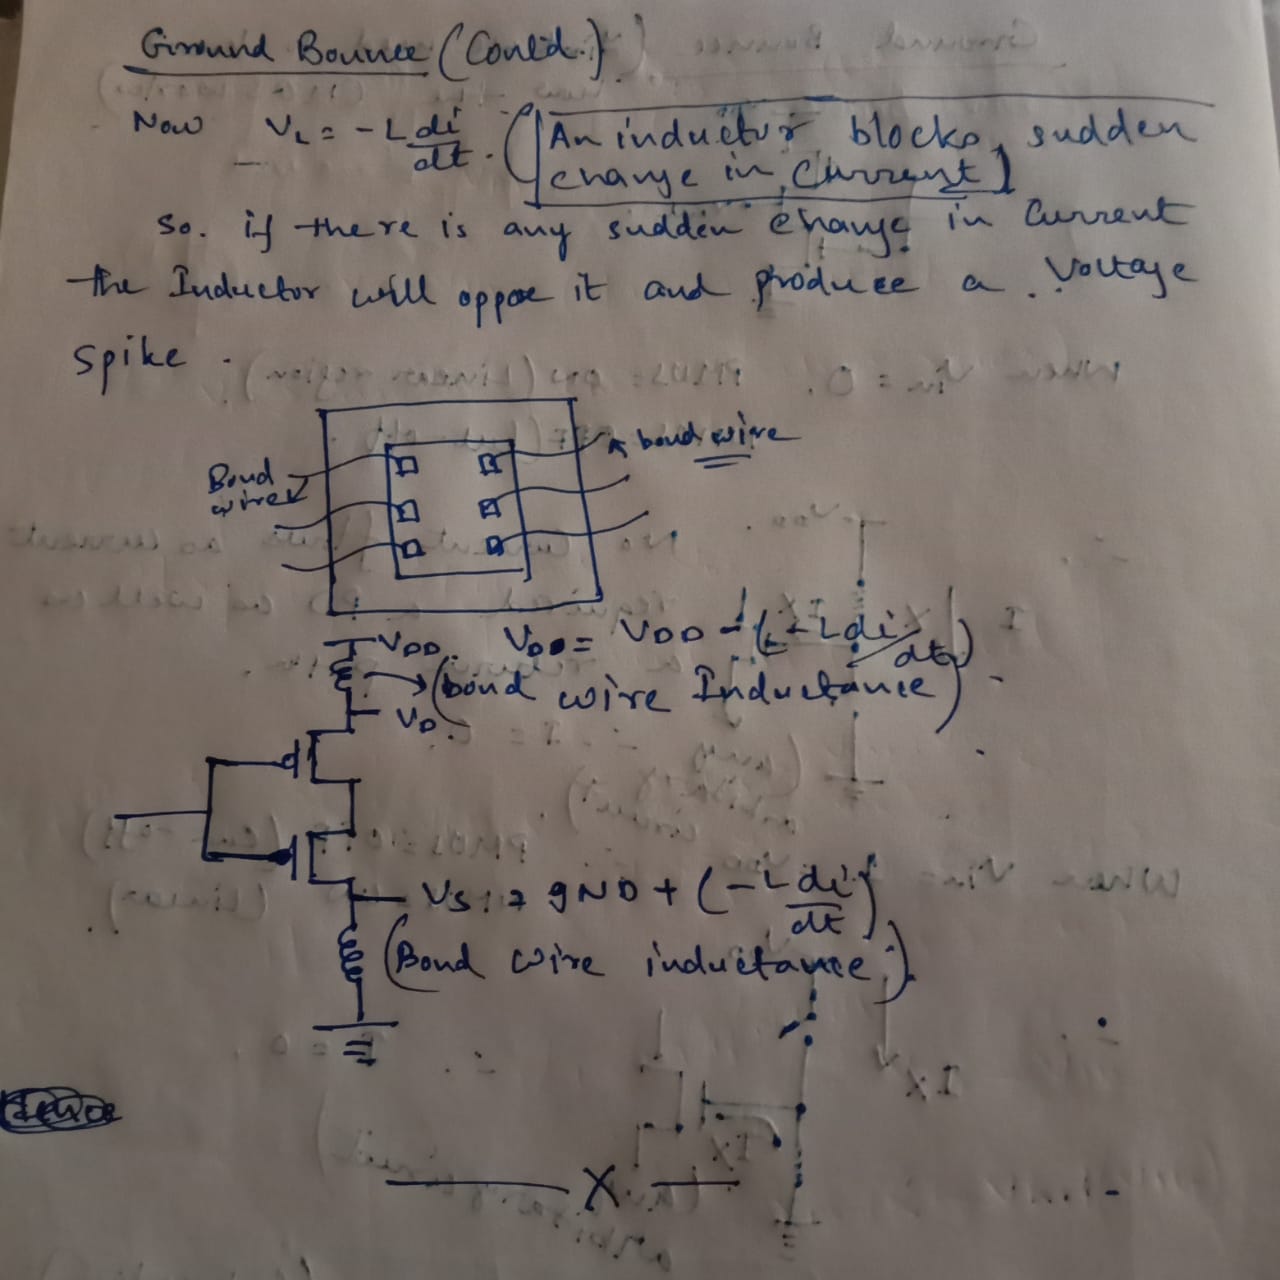 Ground Bounce (Contd.)
Now V_L = -L di/dt. (An inductor blocks sudden
change in current)
So. if there is any sudden change in current
the Inductor will oppose it and produce a voltage
spike.
bond wire
Bond
wire
VDD. VDD = VDD - (-L di/dt)
(bond wire Inductance)
VD.
VS = gND + (-L di/dt)
(Bond wire inductance)
X